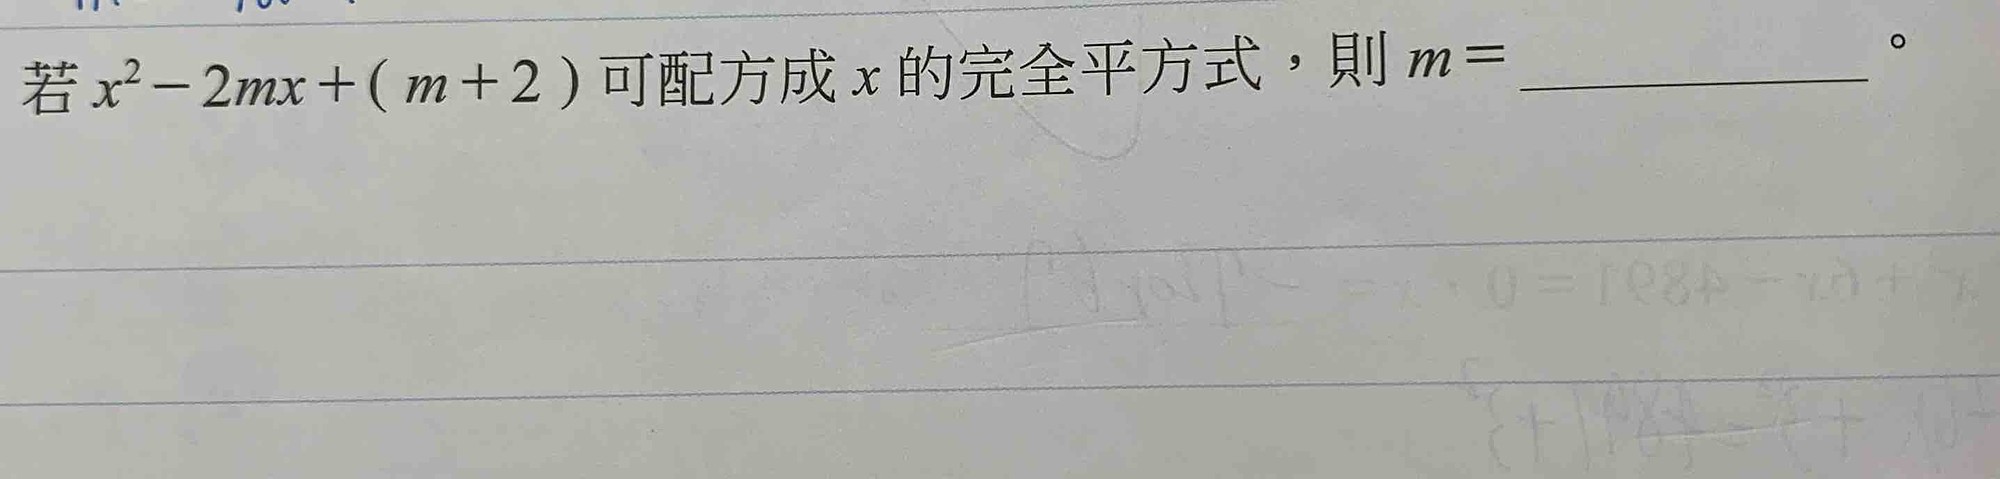 若 x² − 2mx + ( m + 2 ) 可配方成 x 的完全平方式，則 m = ＿＿＿＿＿＿。